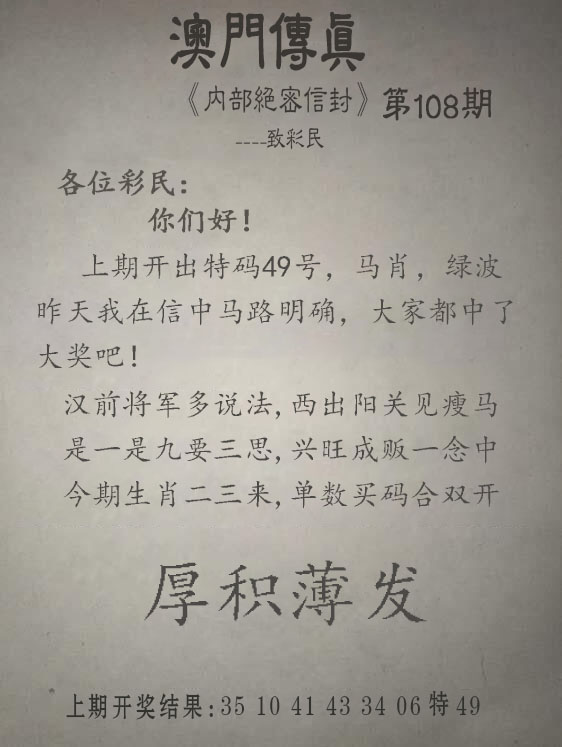 澳門傳真
《内部絕密信封》第108期
----致彩民
各位彩民:
你们好!
上期开出特码49号, 马肖, 绿波
昨天我在信中马路明确, 大家都中了
大奖吧!
汉前将军多说法, 西出阳关见瘦马
是一是九要三思, 兴旺成贩一念中
今期生肖二三来, 单数买码合双开
厚积薄发
上期开奖结果: 35 10 41 43 34 06 特 49